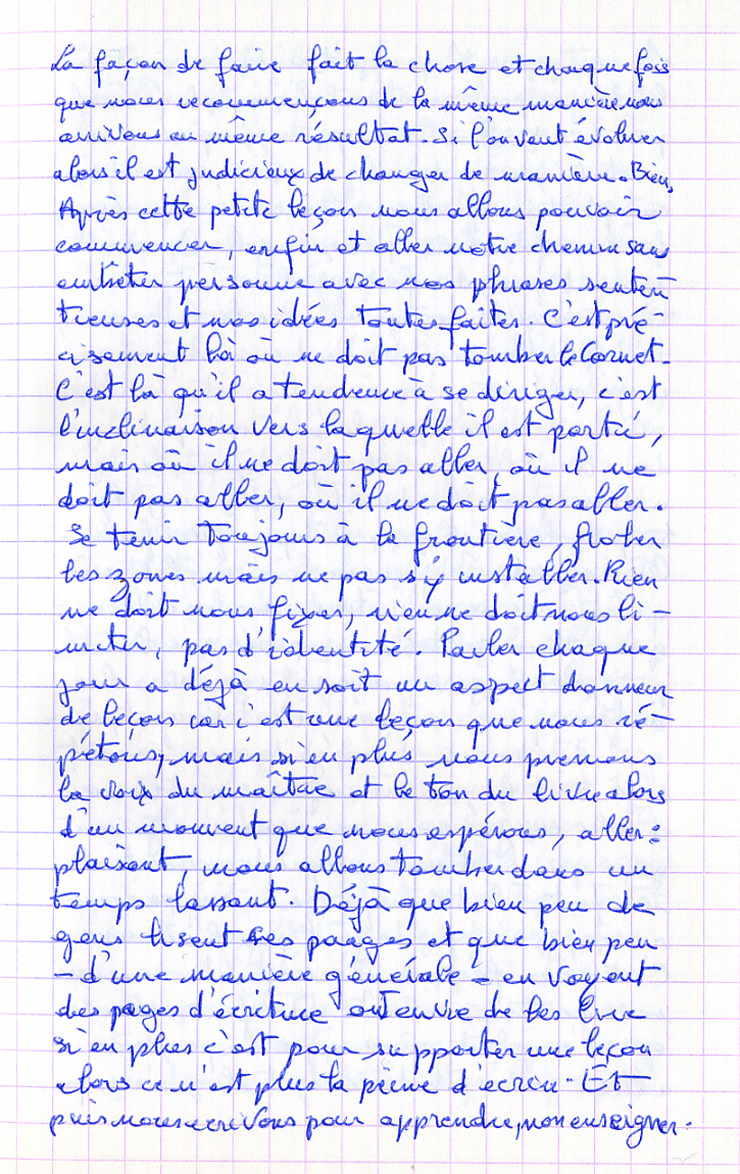 La façon de faire fait la chose et chaque fois
que nous recommençons de la même manière nous
arrivons au même résultat. Si l'on veut évoluer
alors il est judicieux de changer de manière. Bien,
Après cette petite leçon nous allons pouvoir
commencer, enfin et aller notre chemin sans
embêter personne avec nos phrases senten
tieuses et nos idées toutes faites. C'est pré-
cisement là où ne doit pas tomber le Carnet.
C'est là qu'il a tendance à se diriger, c'est
l'inclinaison vers laquelle il est porté,
mais où il ne doit pas aller, où il ne
doit pas aller, où il ne doit pas aller.
Se tenir toujours à la frontière, froler
les zones mais ne pas s'y installer. Rien
ne doit nous fixer, rien ne doit nous li-
miter, pas d'identité. Parler chaque
jour a déjà en soit un aspect donneur
de leçon car c'est une leçon que nous ré-
pétons, mais si en plus nous prenons
la voix du maître et le ton du livre alors
d'un moment que nous espérons, aller :
plaisant, nous allons tomber dans un
temps lassant. Déjà que bien peu de
gens lisent ces pages et que bien peu
- d'une manière générale - en voyant
des pages d'écriture ont envie de les lire
si en plus c'est pour supporter une leçon
alors ce n'est plus la peine d'écrire. Et
puis nous écrivons pour apprendre, non enseigner.